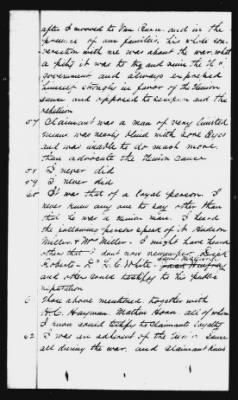 after I moved to Van Buren and in the
presence of our families, his whole con-
versation with me was about the war, what
a pity it was to try and ruin the U.S.
government and always expressed
himself strongly in favor of the Union
cause and opposed to secession and the
rebellion
57 Claimant was a man of very limited
means was nearly blind with sore Eyes
and was unable to do much more
than advocate the Union cause
58 I never did
59 I never did
60 It was that of a loyal person. I
never knew any one to say other than
that he was a union man. I heard
the following persons speak of it. Hudson
Miller & Wm Miller. I might have heard
others that I dont now remember.
Roberts - Dr D. C. White.
and others could testify to his public
reputation
61 Those above mentioned together with
H.C. Hayman. Mathew Moore all of whom
I know could testify to Claimants loyalty
62 I was an adherent of the Union cause
all during the war. and Claimant knew